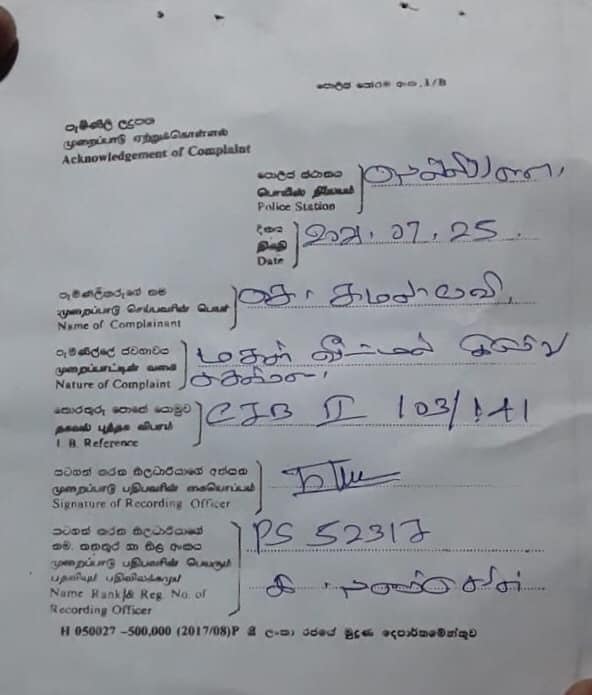 පොලිස් පෝරම අංක. 1/B
පැමිණිලි ලදුපත
முறைப்பாடு ஏற்றுக்கொள்ளல்
Acknowledgement of Complaint
පොලිස් ස්ථානය
பொலிஸ் நிலையம்
Police Station
දිනය
திகதி
Date
2021.07.25.
පැමිණිලිකරුගේ නම
முறைப்பாடு செய்பவரின் பெயர்
Name of Complainant
පැමිණිල්ලේ ස්වභාවය
முறைப்பாட்டின் வகை
Nature of Complaint
மகள்
තොරතුරු පොතේ යොමුව
தகவல் புத்தக விபரம்
I. B. Reference
CIB II 103/141
සටහන් කරන නිලධාරියාගේ අත්සන
முறைப்பாடு பதிபவரின் கையொப்பம்
Signature of Recording Officer
සටහන් කරන නිලධාරියාගේ
නම, තනතුර හා නිල අංකය
முறைப்பாடு பதிபவரின் பெயரும்
பதவியும் பதிவிலக்கமும்
Name Rank & Reg. No. of
Recording Officer
PS 52317
H 050027 –500,000 (2017/08)P ශ්‍රී ලංකා රජයේ මුද්‍රණ දෙපාර්තමේන්තුව